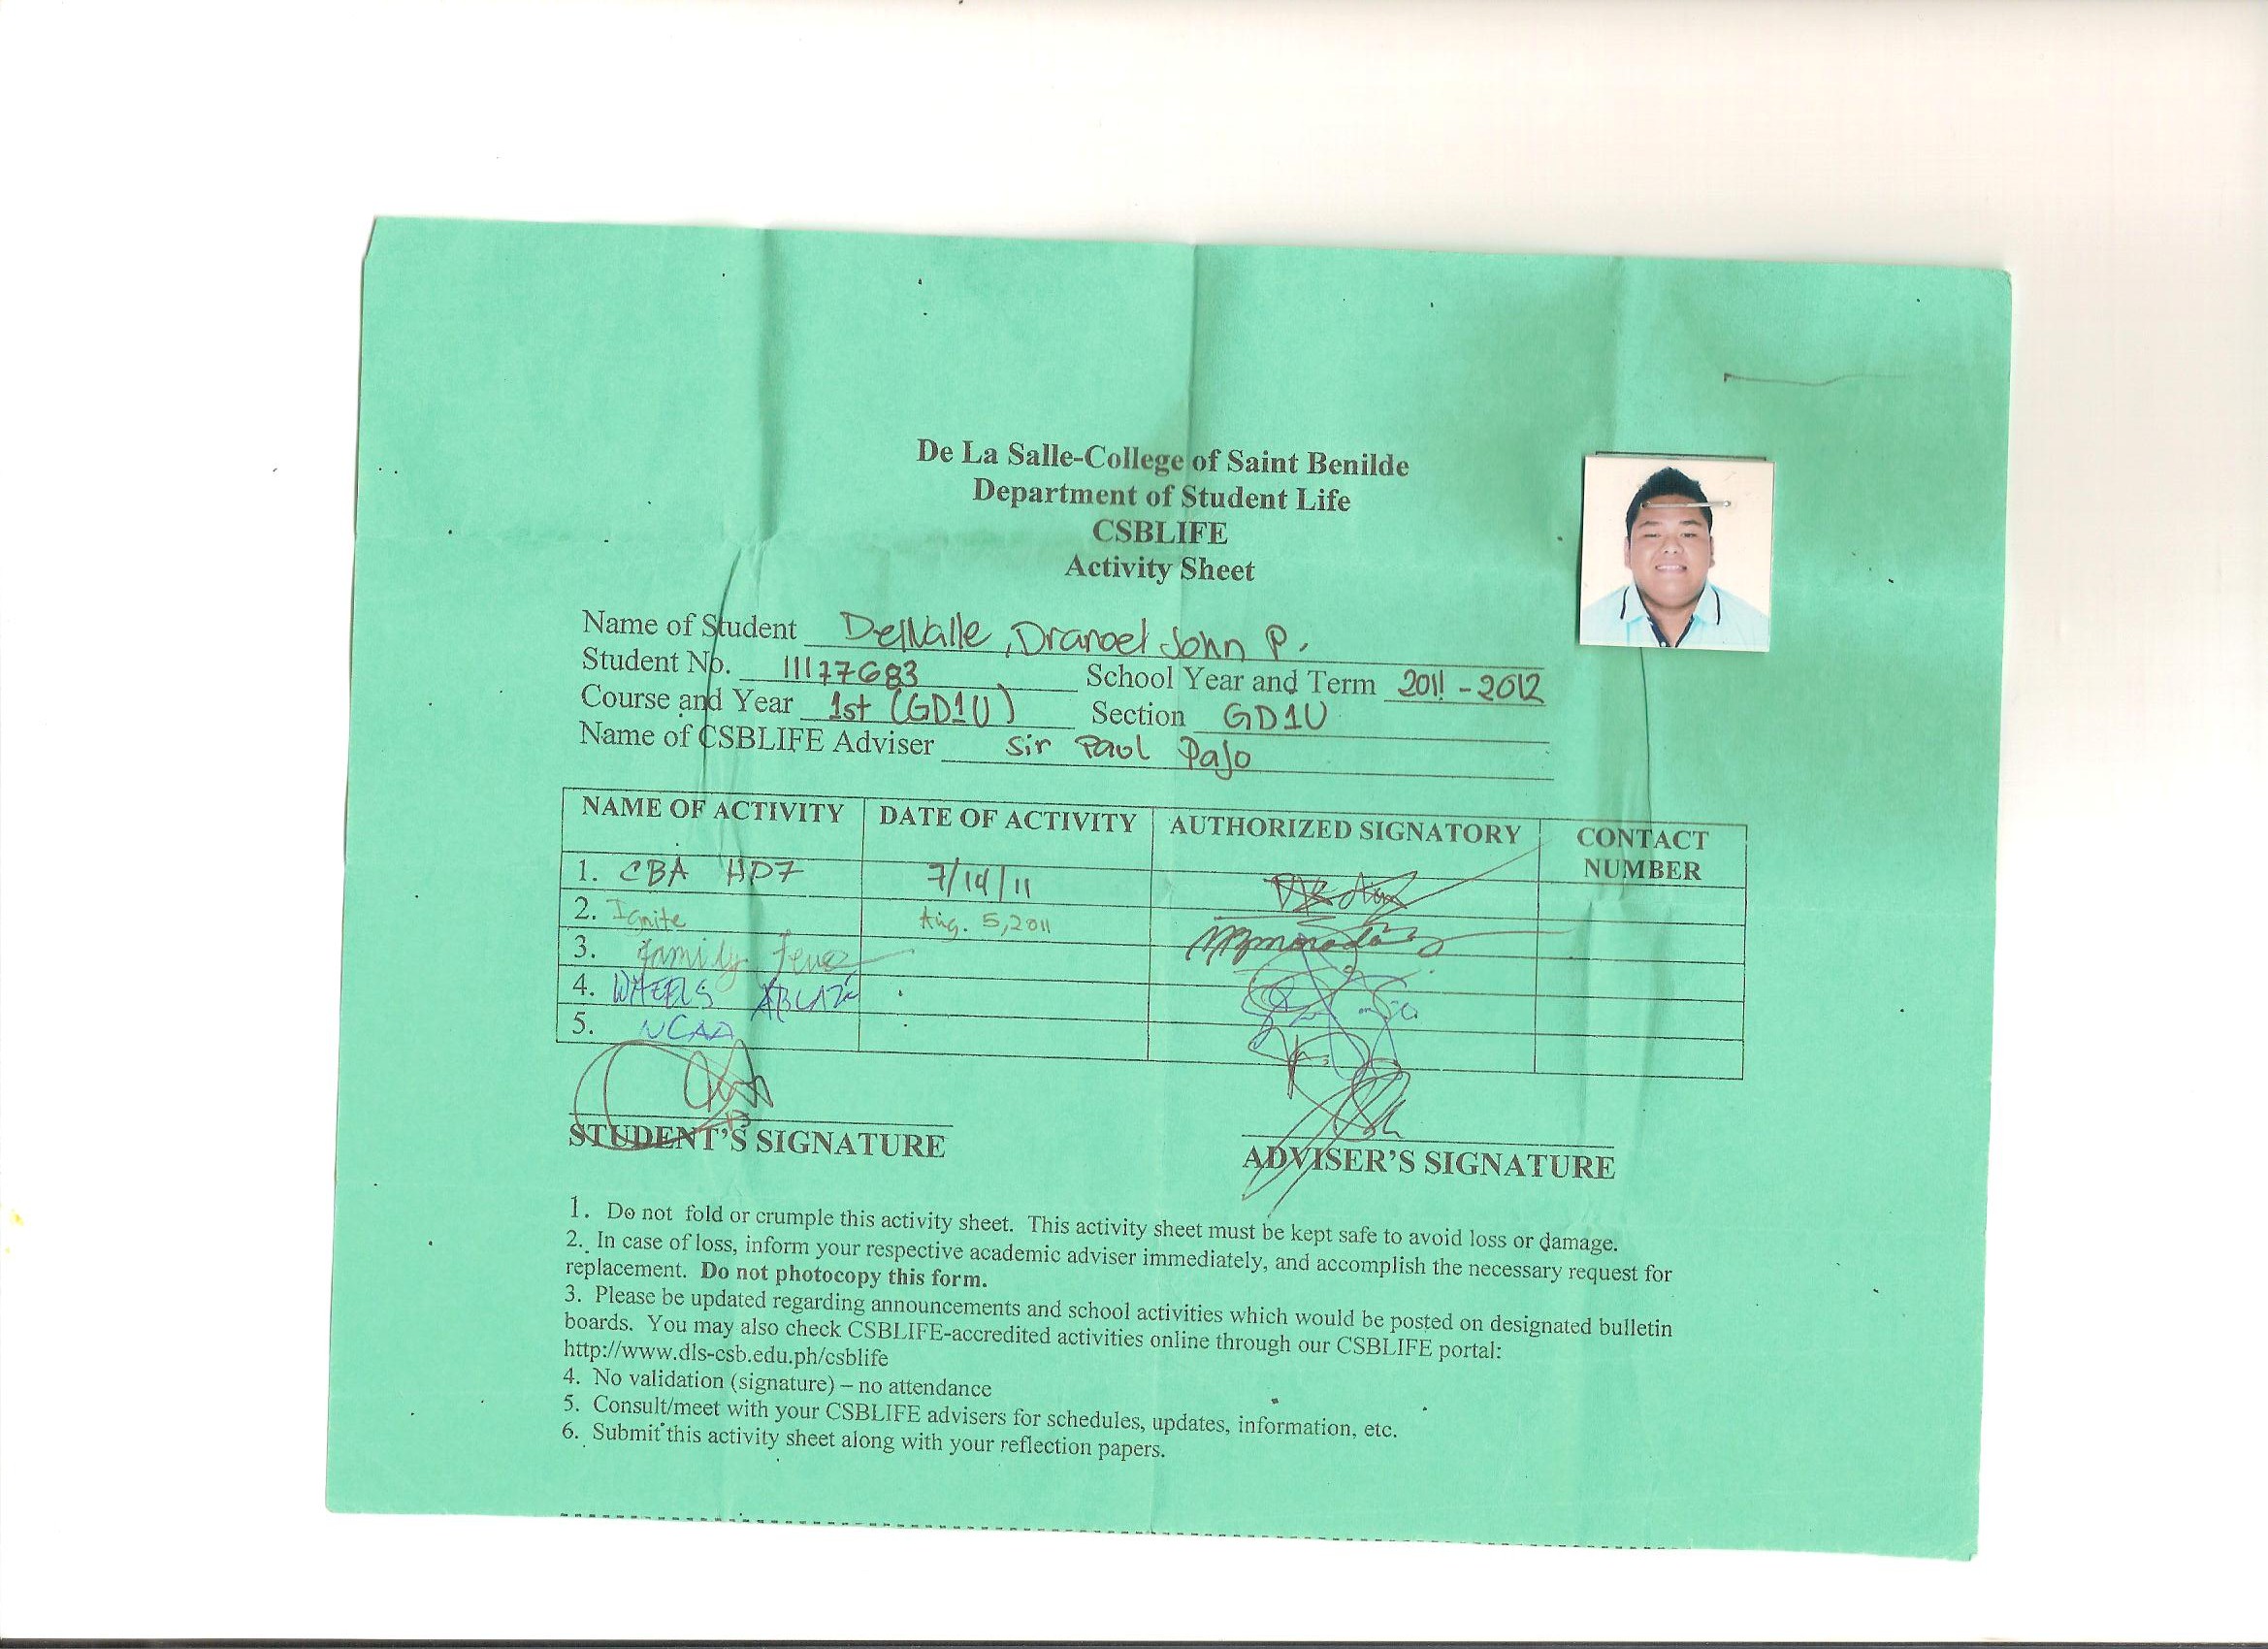 De La Salle-College of Saint Benilde
Department of Student Life
CSBLIFE
Activity Sheet
Name of Student DelValle, Dranoel John P.
Student No. 11177683 School Year and Term 2011-2012
Course and Year 1st (GD1U) Section GD1U
Name of CSBLIFE Adviser Sir Paul Pajo
NAME OF ACTIVITY DATE OF ACTIVITY AUTHORIZED SIGNATORY CONTACT NUMBER
1. CBA HD7 7/14/11
2. Ignite Aug. 5, 2011
3. Family Feud
4. WHEELS ABLAZE
5. NCAA
STUDENT'S SIGNATURE ADVISER'S SIGNATURE
1. Do not fold or crumple this activity sheet. This activity sheet must be kept safe to avoid loss or damage.
2. In case of loss, inform your respective academic adviser immediately, and accomplish the necessary request for
replacement. Do not photocopy this form.
3. Please be updated regarding announcements and school activities which would be posted on designated bulletin
boards. You may also check CSBLIFE-accredited activities online through our CSBLIFE portal:
http://www.dls-csb.edu.ph/csblife
4. No validation (signature) – no attendance
5. Consult/meet with your CSBLIFE advisers for schedules, updates, information, etc.
6. Submit this activity sheet along with your reflection papers.